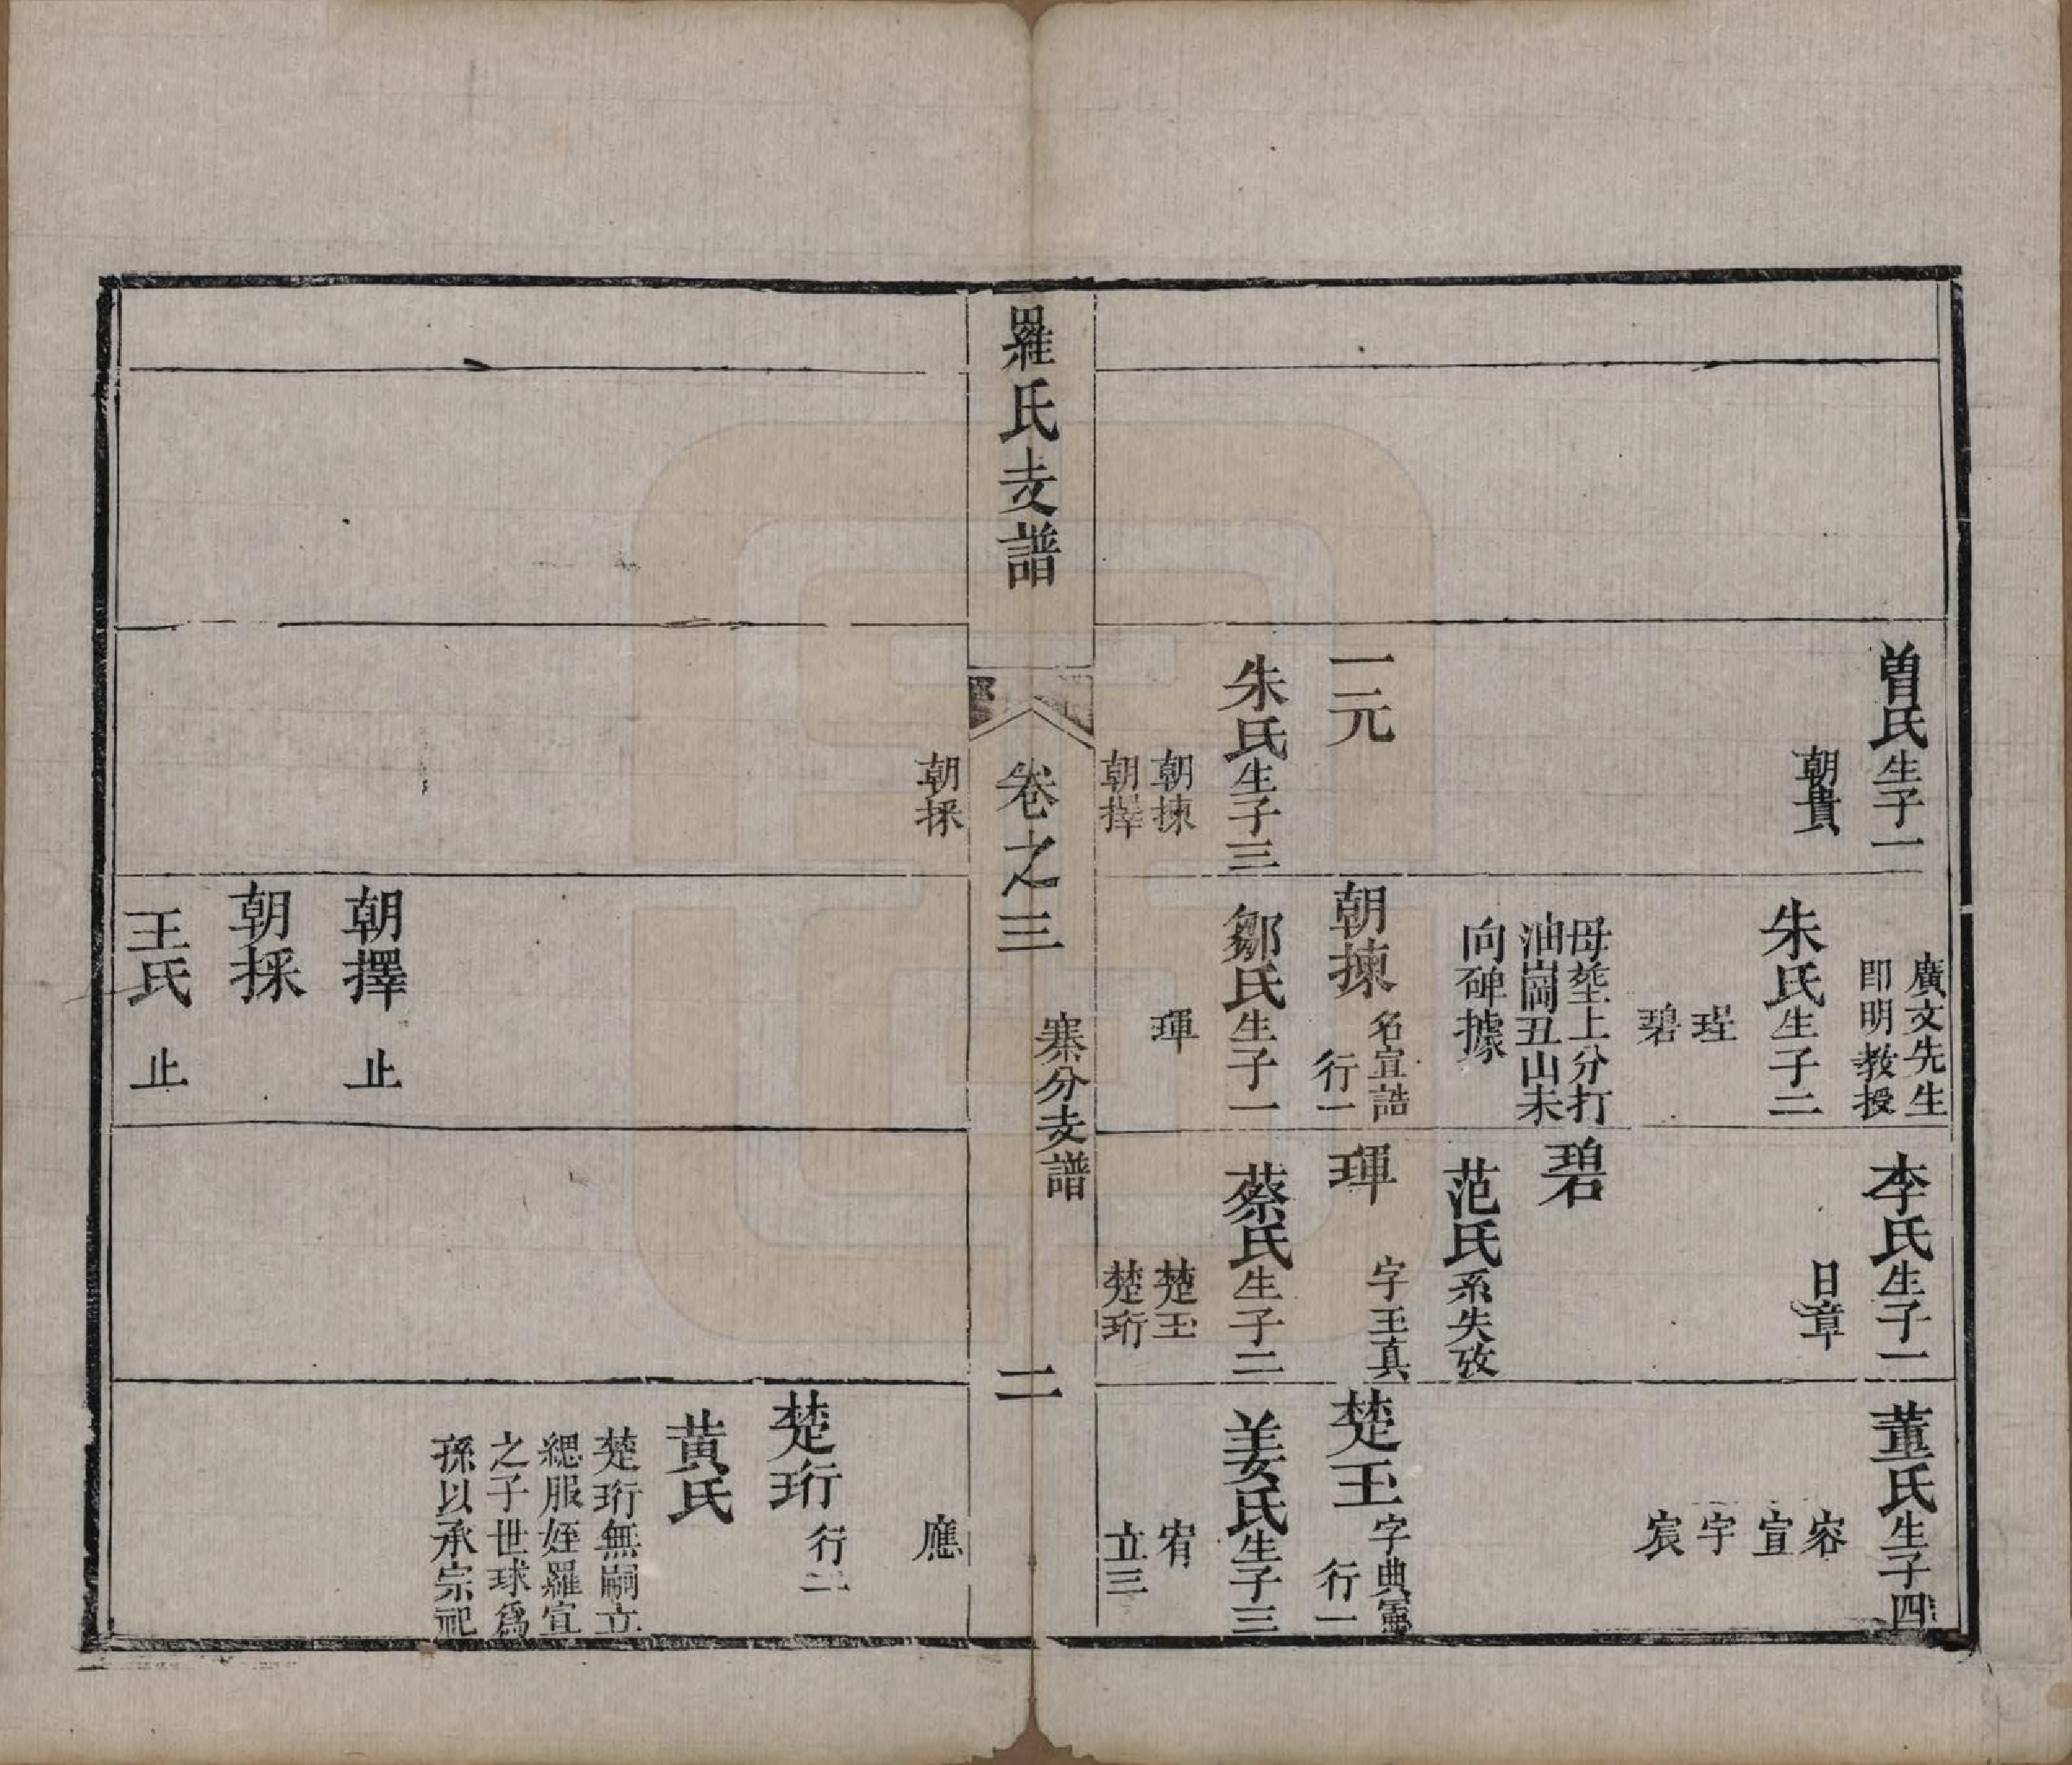 曾氏生子一
朝貴
一元
朱氏生子三
朝揀
朝擇
廣文先生
即明教授
朱氏生子二
珵
碧
母塋上分打
油崗丑山未
向碑據
朝揀
名宜誥
行一
鄒氏生子一
琿
李氏生子一
日章
碧
范氏系失攷
琿
字玉真
蔡氏生子二
楚玉
楚珩
董氏生子四
容
宣
宇
宸
楚玉
字典
行一
姜氏生子三
宥
立三
羅氏支譜
卷之三
寨分支譜
二
朝採
朝擇 止
朝採
王氏 止
應
楚珩
行二
黃氏
楚珩無嗣立
緦服姪羅宣
之子世球爲
孫以承宗祀